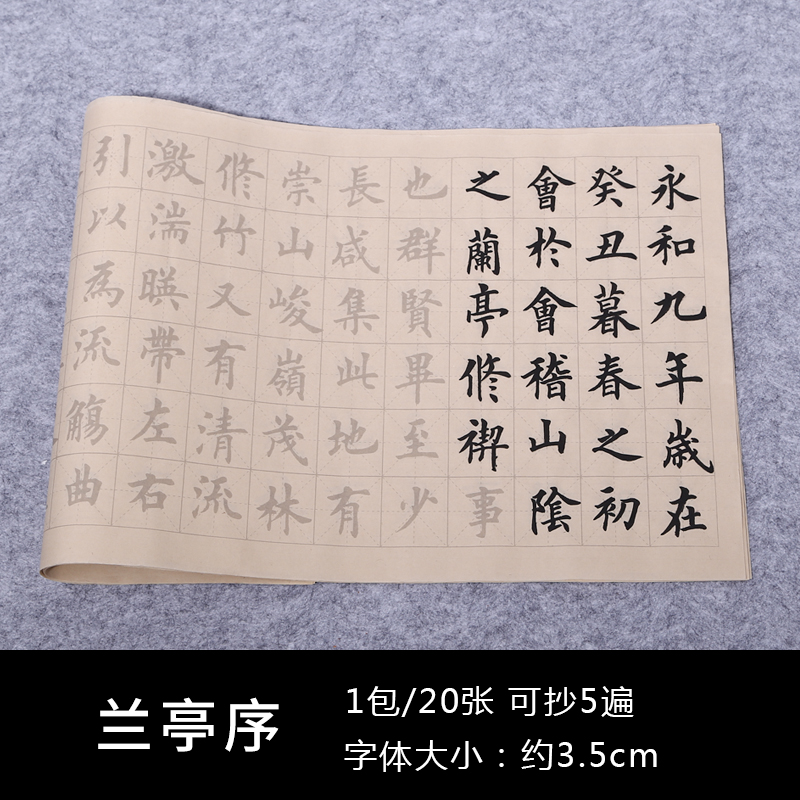 永和九年歲在
癸丑暮春之初
會於會稽山陰
之蘭亭修禊事
也群賢畢至少
長咸集此地有
崇山峻嶺茂林
修竹又有清流
激湍暎帶左右
引以為流觴曲
兰亭序
1包/20张 可抄5遍
字体大小：约3.5cm